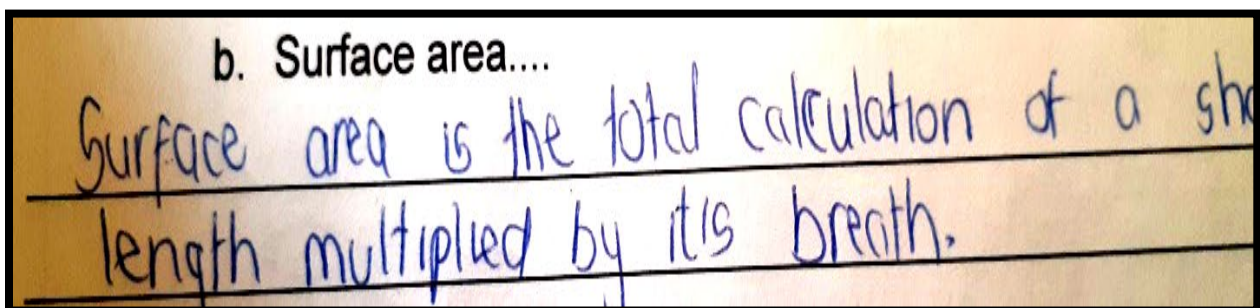 b. Surface area....
Surface area is the total calculation of a
length multiplied by it's breath.